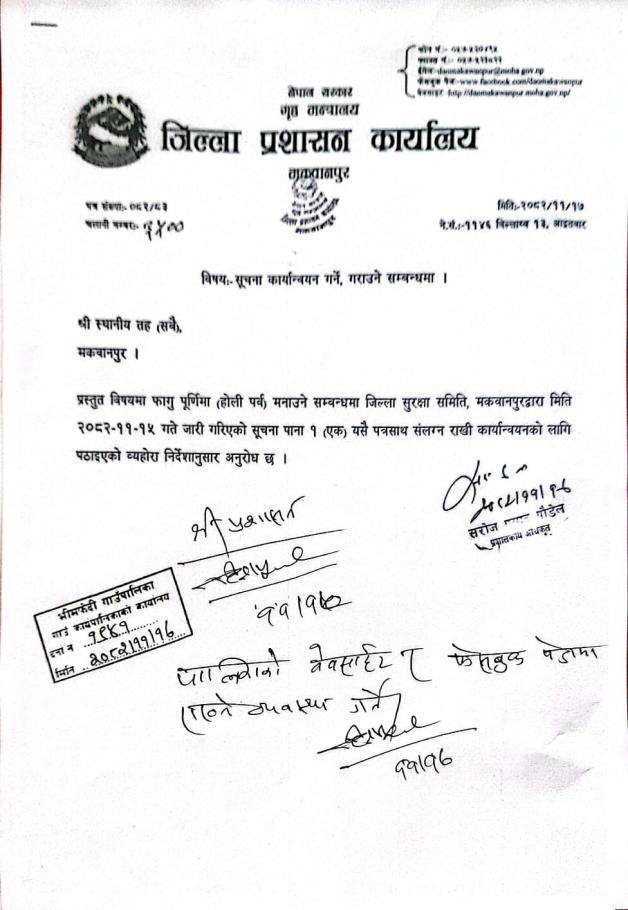 फोन नं.:- ०५७-५२०४९५
फ्याक्स नं.:-
ईमेल:-daomakawanpur@moha.gov.np
फेसबुक पेज:-www.facebook.com/daomakawanpur
वेबसाइट: http://daomakawanpur.moha.gov.np/
नेपाल सरकार
गृह मन्त्रालय
जिल्ला प्रशासन कार्यालय
मकवानपुर
पत्र संख्याः- ०८२/८३
मितिः-२०८२/११/१७
चलानी नम्बरः- ६५००
ने.सं.:-११४६ चिल्लाथ्व १३, आइतबार
विषयः- सूचना कार्यान्वयन गर्ने, गराउने सम्बन्धमा ।
श्री स्थानीय तह (सबै),
मकवानपुर ।
प्रस्तुत विषयमा फागु पूर्णिमा (होली पर्व) मनाउने सम्बन्धमा जिल्ला सुरक्षा समिति, मकवानपुरद्वारा मिति
२०८२-११-१५ गते जारी गरिएको सूचना पाना १ (एक) यसै पत्रसाथ संलग्न राखी कार्यान्वयनको लागि
पठाइएको व्यहोरा निर्देशानुसार अनुरोध छ ।
२०८२/११/१८
सरोज पौडेल
प्रशासकीय अधिकृत
श्री प्रशासन
भीमफेदी गाउँपालिका
गाउँ कार्यपालिकाको कार्यालय
दर्ता नं १९४१
मिति २०८२/११/१८
पालिकाको वेवसाईट र फेसबुक पेजमा
राख्ने व्यवस्था गर्ने
११/१८